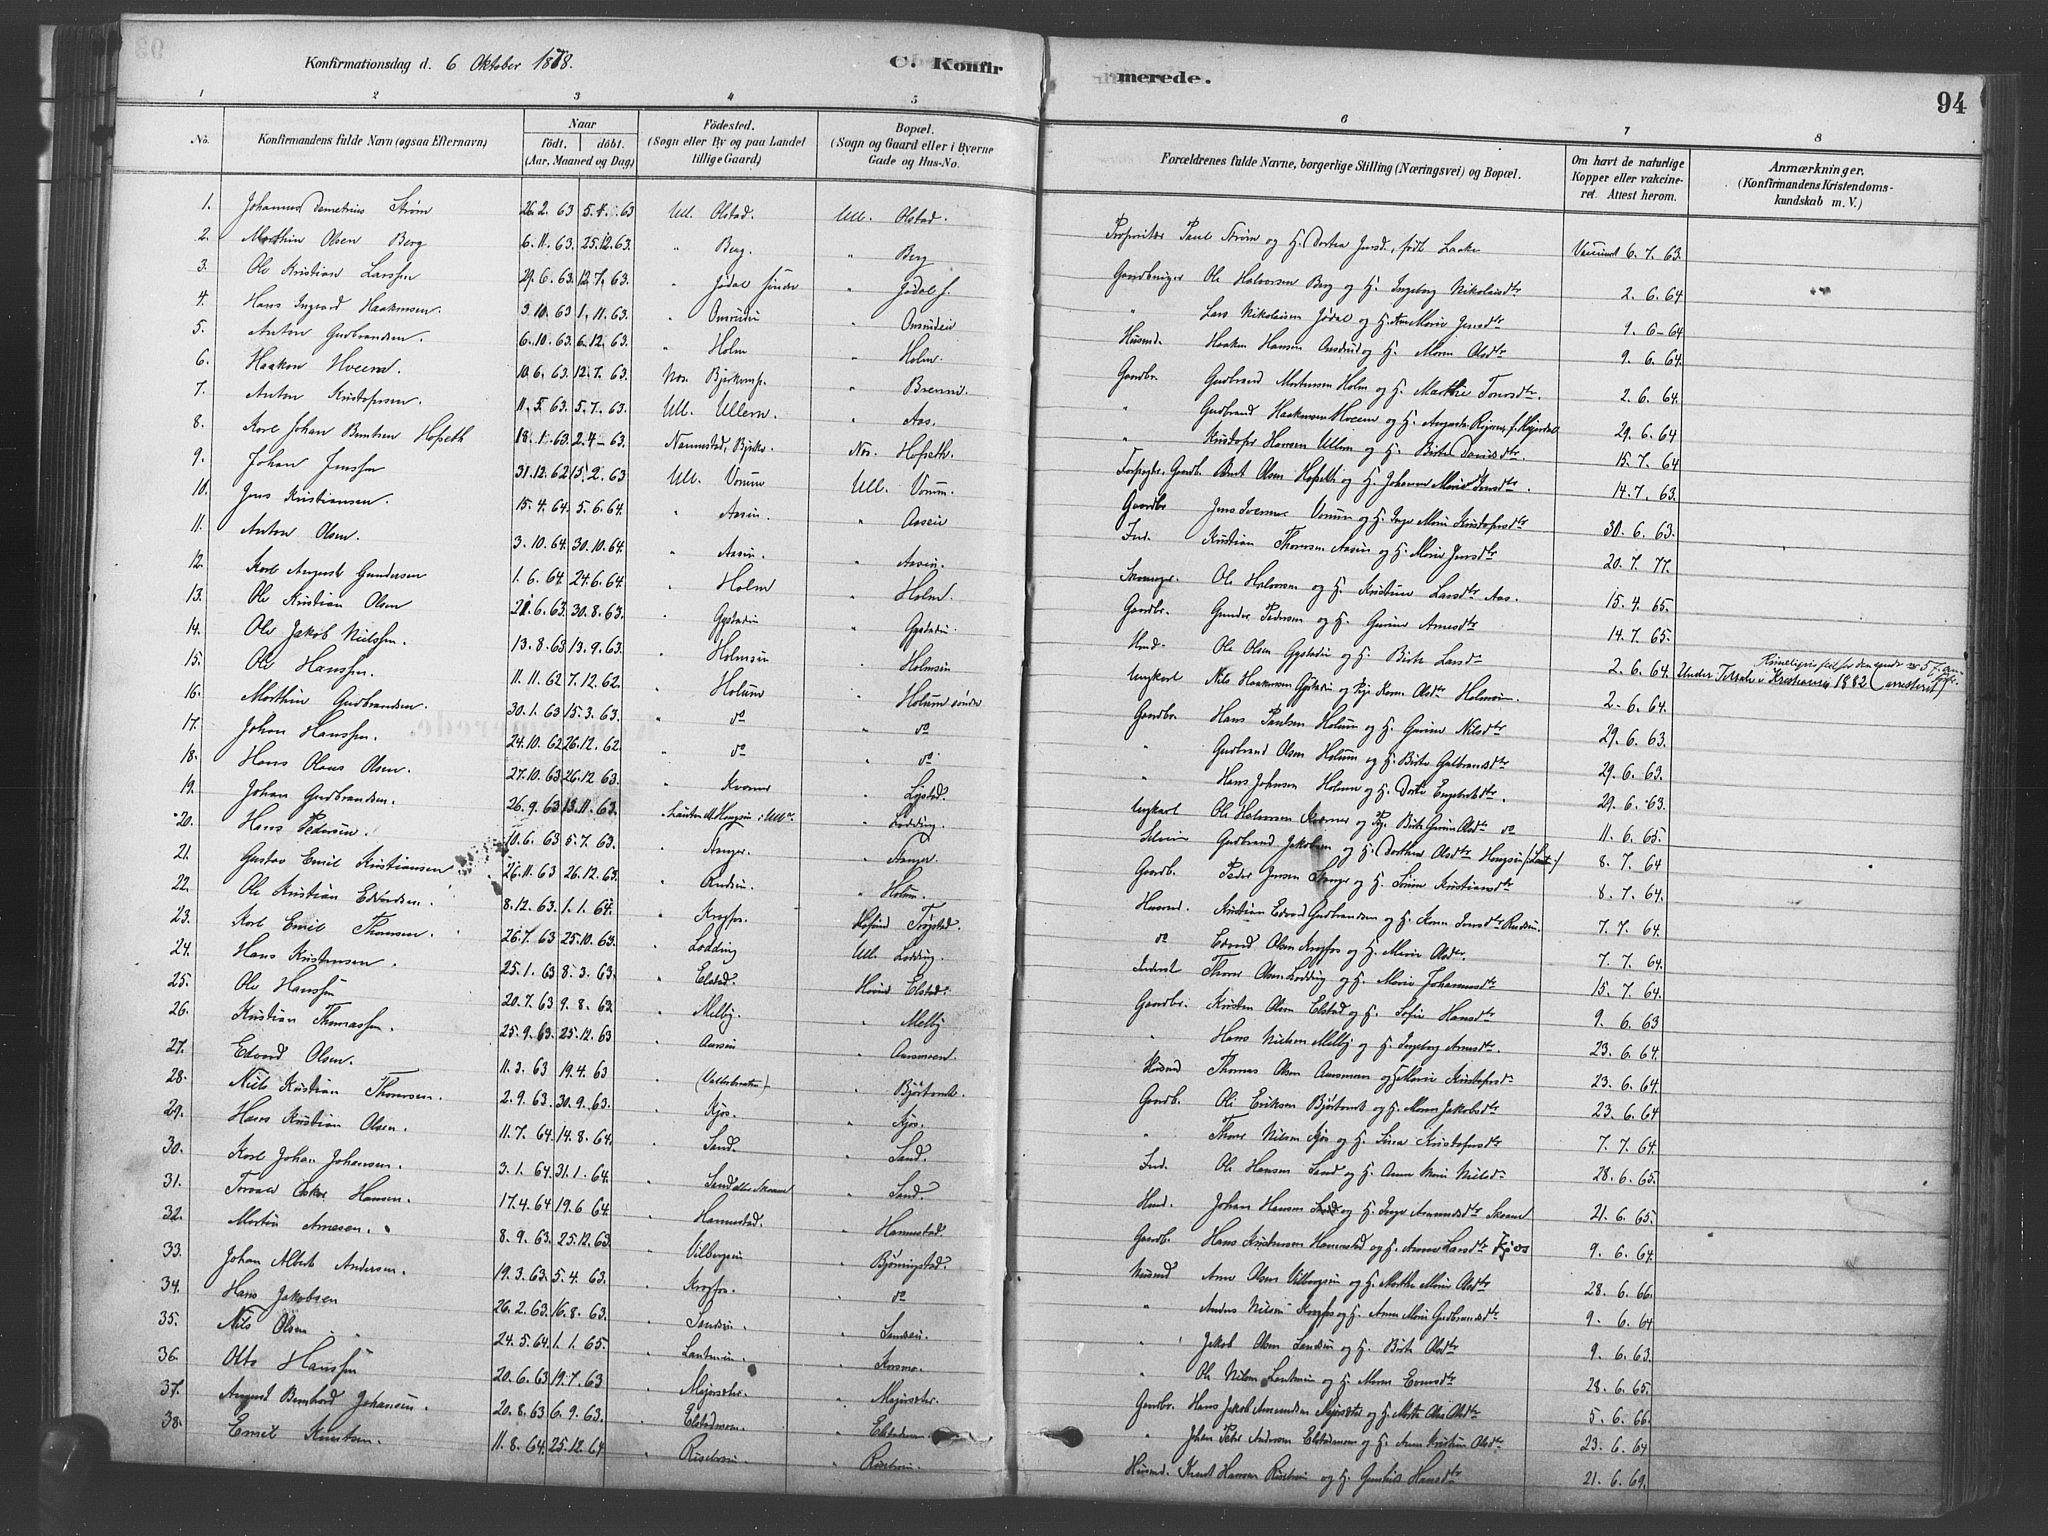 Konfirmationsdag d. 6 Oktober 1878.
C. Konfirmerede.
94
1 2 3 4 5 6 7 8
No.
Konfirmandens fulde Navn (ogsaa Efternavn)
Naar
födt. döbt.
(Aar, Maaned og Dag)
Födested.
(Sogn eller By og paa Landet tillige Gaard)
Bopæl.
(Sogn og Gaard eller i Byerne Gade og Hus-No.
Forældrenes fulde Navne, borgerlige Stilling (Næringsvei) og Bopæl.
Om havt de naturlige Kopper eller vakcineret. Attest herom.
Anmærkninger.
(Konfirmandens Kristendomskundskab m. V.)
1. Johannes Demetrius Strøm 26. 2. 63 Ull. Olstad. Ull. Olstad. Paul Strøm og H. Dortea Jensd. født Laake 6. 7. 63.
2. Morthin Olsen Berg 6. 11. 63. 25. 12. 63. " Berg. " Berg Gaardbruger Ole Halvorsen Berg og H. Ingeborg Nikolaisdtr 2. 6. 64
3. Ole Kristian Larssen 29. 6. 63. 12. 7. 63. " Jødal søndre " Jødal s. " Lars Nikolaisen Jødal og H. Marie Jensdtr 9. 6 - 64
4. Hans Ingvard Haakensen. 3. 10. 63. 1. 11. 63. " " Husmd. Haaken Hansen og H. Maren Olsdtr 9. 6. 64.
5. Anton Gudbrandsen. 6. 10. 63. 6. 12. 63. " Holm " Holm. Gaardbr. Gudbrand Mortensen Holm og H. Marthe 2. 6. 64.
6. Haakon Hveem. 10. 6. 63. 12. 7. 63. Nes. " " Gudbrand Haakensen Hveem og H. Augusta 29. 6. 64
7. Anton Kristofersen. 11. 5. 63. 5. 7. 63. Ull. Ullern. " Aas. " Kristofer Hansen Ullern og H. Birthe Davidsdtr. 15. 7. 64
8. Karl Johan Berntsen Hopseth 18. 1. 63. 2. 4 - 63. Nannestad, Nes. Hopseth. Gaardb. Bernt Olsen Hopseth og H. Johanne Marie 14. 7. 63.
9. Johan Jenssen 31. 12. 62 15. 2. 63 Ull. Vorum Ull. Vorum. Gaardbr Jens Iversen Vorum og H. Inger Marie Kristofersdtr 30. 6. 63.
10. Jens Kristiansen. 15. 4. 64. 5. 6. 64. " Aasen. " Aasen Ind. Kristian Thorersen Aasen og H. Marie Jensdtr 20. 7. 77.
11. Anton Olsen. 3. 10. 64. 30. 10. 64. " Aasen. " Aasen. Ole Halvorsen og H. Kristine Larsdtr Aas. 15. 4. 65.
12. Karl August Gundersen 1. 6. 64. 24. 6. 64. " Holm " Holm. Gaardbr. Gunder Pedersen og H. Gurine Arnesdtr 14. 7. 65.
13. Ole Kristian Olsen 21. 6. 63. 30. 8. 63. " Gystadei " Gystadei. Husmd. Ole Olsen Gystadei og H. Birthe Larsdtr 2. 6. 64.
14. Ole Jakob Nielssen. 13. 8. 63 13. 9. 63. " Holmsen " Holmsen Ungkarl Nils Haakensen Gystadei og Karen Olsdtr Holmsen. 2. 6. 64. Under Tiltale i Kristiania 1882 (arresteret)
15. Ole Hanssen. 11. 11. 62 7. 12. 62. " Holum " Holum søndre Gaardbr. Hans Paulsen Holum og H. Gurine Nilsdtr 29. 6. 63.
16. Morthin Gudbrandsen. 30. 1. 63 15. 3. 63. " do " do " Gudbrand Olsen Holum og H. Birthe Gulbransdtr 29. 6. 63.
17. Johan Hanssen. 24. 10. 62 26. 12. 62. " do " do " Hans Johnsen Holum og H. Dorte Engebretsdtr. 29. 6. 63.
18. Hans Olaus Olsen. 27. 10. 63 26. 12 63. " Kverner " Løystad. Ungkarl Ole Halvorsen Kverner og Birthe Gurine Olsdtr do 11. 6. 65.
19. Johan Gudbrandsen. 26. 9. 63 13. 11. 63. " Lodding. Gudbrand Jakobsen og H. Dorthea Olsdtr 8. 7. 64
20. Hans Pedersen. 10. 6. 63 5. 7. 63. " Stanger. " Stanger. Gaardb. Peder Jensen Stanger og H. Sirine Kristiansdtr 8. 7. 64.
21. Gustav Emil Kristiansen 26. 11. 63 26. 12. 63. " Rudsen. " Holum. Husmd. Kristian Edvard Gudbrandsen og H. Karen Rudsen. 7. 7. 64.
22. Ole Kristian Edvardsen. 8. 12. 63. 1. 1. 64. " Krogfos. Trøgstad. do Edvard Olsen Krogfos og H. Marie Olsdtr. 7. 7. 64.
23. Karl Emil Thoresen. 26. 7. 63 25. 10. 63. " Lodding Ull. Lodding. Inderst Thore Olsen Lodding og H. Marie Johannesdtr 15. 7. 64.
24. Hans Kristensen. 25. 1. 63 8. 3. 63. " Elstad. Hovin Elstad. Gaardbr. Kristen Olsen Elstad og H. Sofie Hansdtr 9. 6. 63
25. Ole Hanssen 20. 7. 63 9. 8. 63. " Melby. " Melby. " Hans Nielsen Melby og H. Ingeborg Arnesdtr. 23. 6. 64.
26. Kristian Thomassen. 25. 9. 63. 25. 12. 63 " " Aasmoen. Husmd Thomas Olsen Aasmoen og H. Marie Kristofersd. 23. 6. 64.
27. Edvard Olsen. 11. 3. 63 19. 4. 63 " " Bjørtomt. Gaardb. Ole Eriksen Bjørtomt og H. Maren Jakobsdtr 23. 6. 64
28. Niels Kristian Thoresen. 2. 9. 63. 30. 9. 63. " Kjos. " Kjos. " Thore Nilsen Kjos og H. Lina Kristofersdtr 7. 7. 64.
29. Hans Kristian Olsen. 11. 7. 64. 14. 8. 64. " Sand. " Sand. Ind. Ole Hansen Sand og H. Anne Marie Nilsd. 28. 6. 65.
30. Karl Johan Johansen. 3. 1. 64 31. 1. 64. " Sand " Sand. Husmd. Johan Hansen Sand og H. Inger Amundsdtr 21. 6. 65.
31. Torvald Oskar Hansen. 17. 4. 64 19. 6. 64. " Hannestad. " Hannestad. Gaardb. Hans Kristensen Hannestad og H. Anne Larsdtr Kjos 9. 6. 64.
32. Martin Arnesen. 8. 9. 63. 25. 12. 63. " Vilbergsen " Bjørningstad. Husmd Arne Olsen Vilbergsen og H. Marthe Marie Olsdtr 28. 6. 66.
33. Johan Albert Andersen. 19. 3. 63. 5. 4. 63. " Krogfos. " do " Anders Nilsen Krogfos og H. Anne Marie Gudbrandsdtr 9. 6. 64
34. Hans Jakobsen 26. 2. 63. 16. 8. 63. " Sandsen. " Sandsen. " Jakob Olsen Sandsen og H. Birthe Olsdtr 9. 6. 63.
35. Nils Olsen 24. 5. 64. 1. 1. 65. " " Korsmo. " Ole Nilsen og H. Maren Evensdtr 28. 6. 65.
36. Otto Hanssen 20. 6. 63 19. 7. 63 " Majorseter. " Majorseter. Gaardbr. Hans Jakob Amundsen Majorseter og H. Marte Olsdtr 5. 6. 66.
37. August Bernhard Johansen. 20. 8. 63 6. 9. 63. " Elstadmoen. " Elstadmoen. " Johan Peter Andersen Elstadmoen og H. Anne Kristine Olsdtr 23. 6. 64
38. Emil Knutsen. 11. 8. 64. 25. 12. 64 " Risebroen. " Risebroen. Husmd. Knut Hansen Risebroen og H. Gunhild Hansdtr 21. 6. 69.